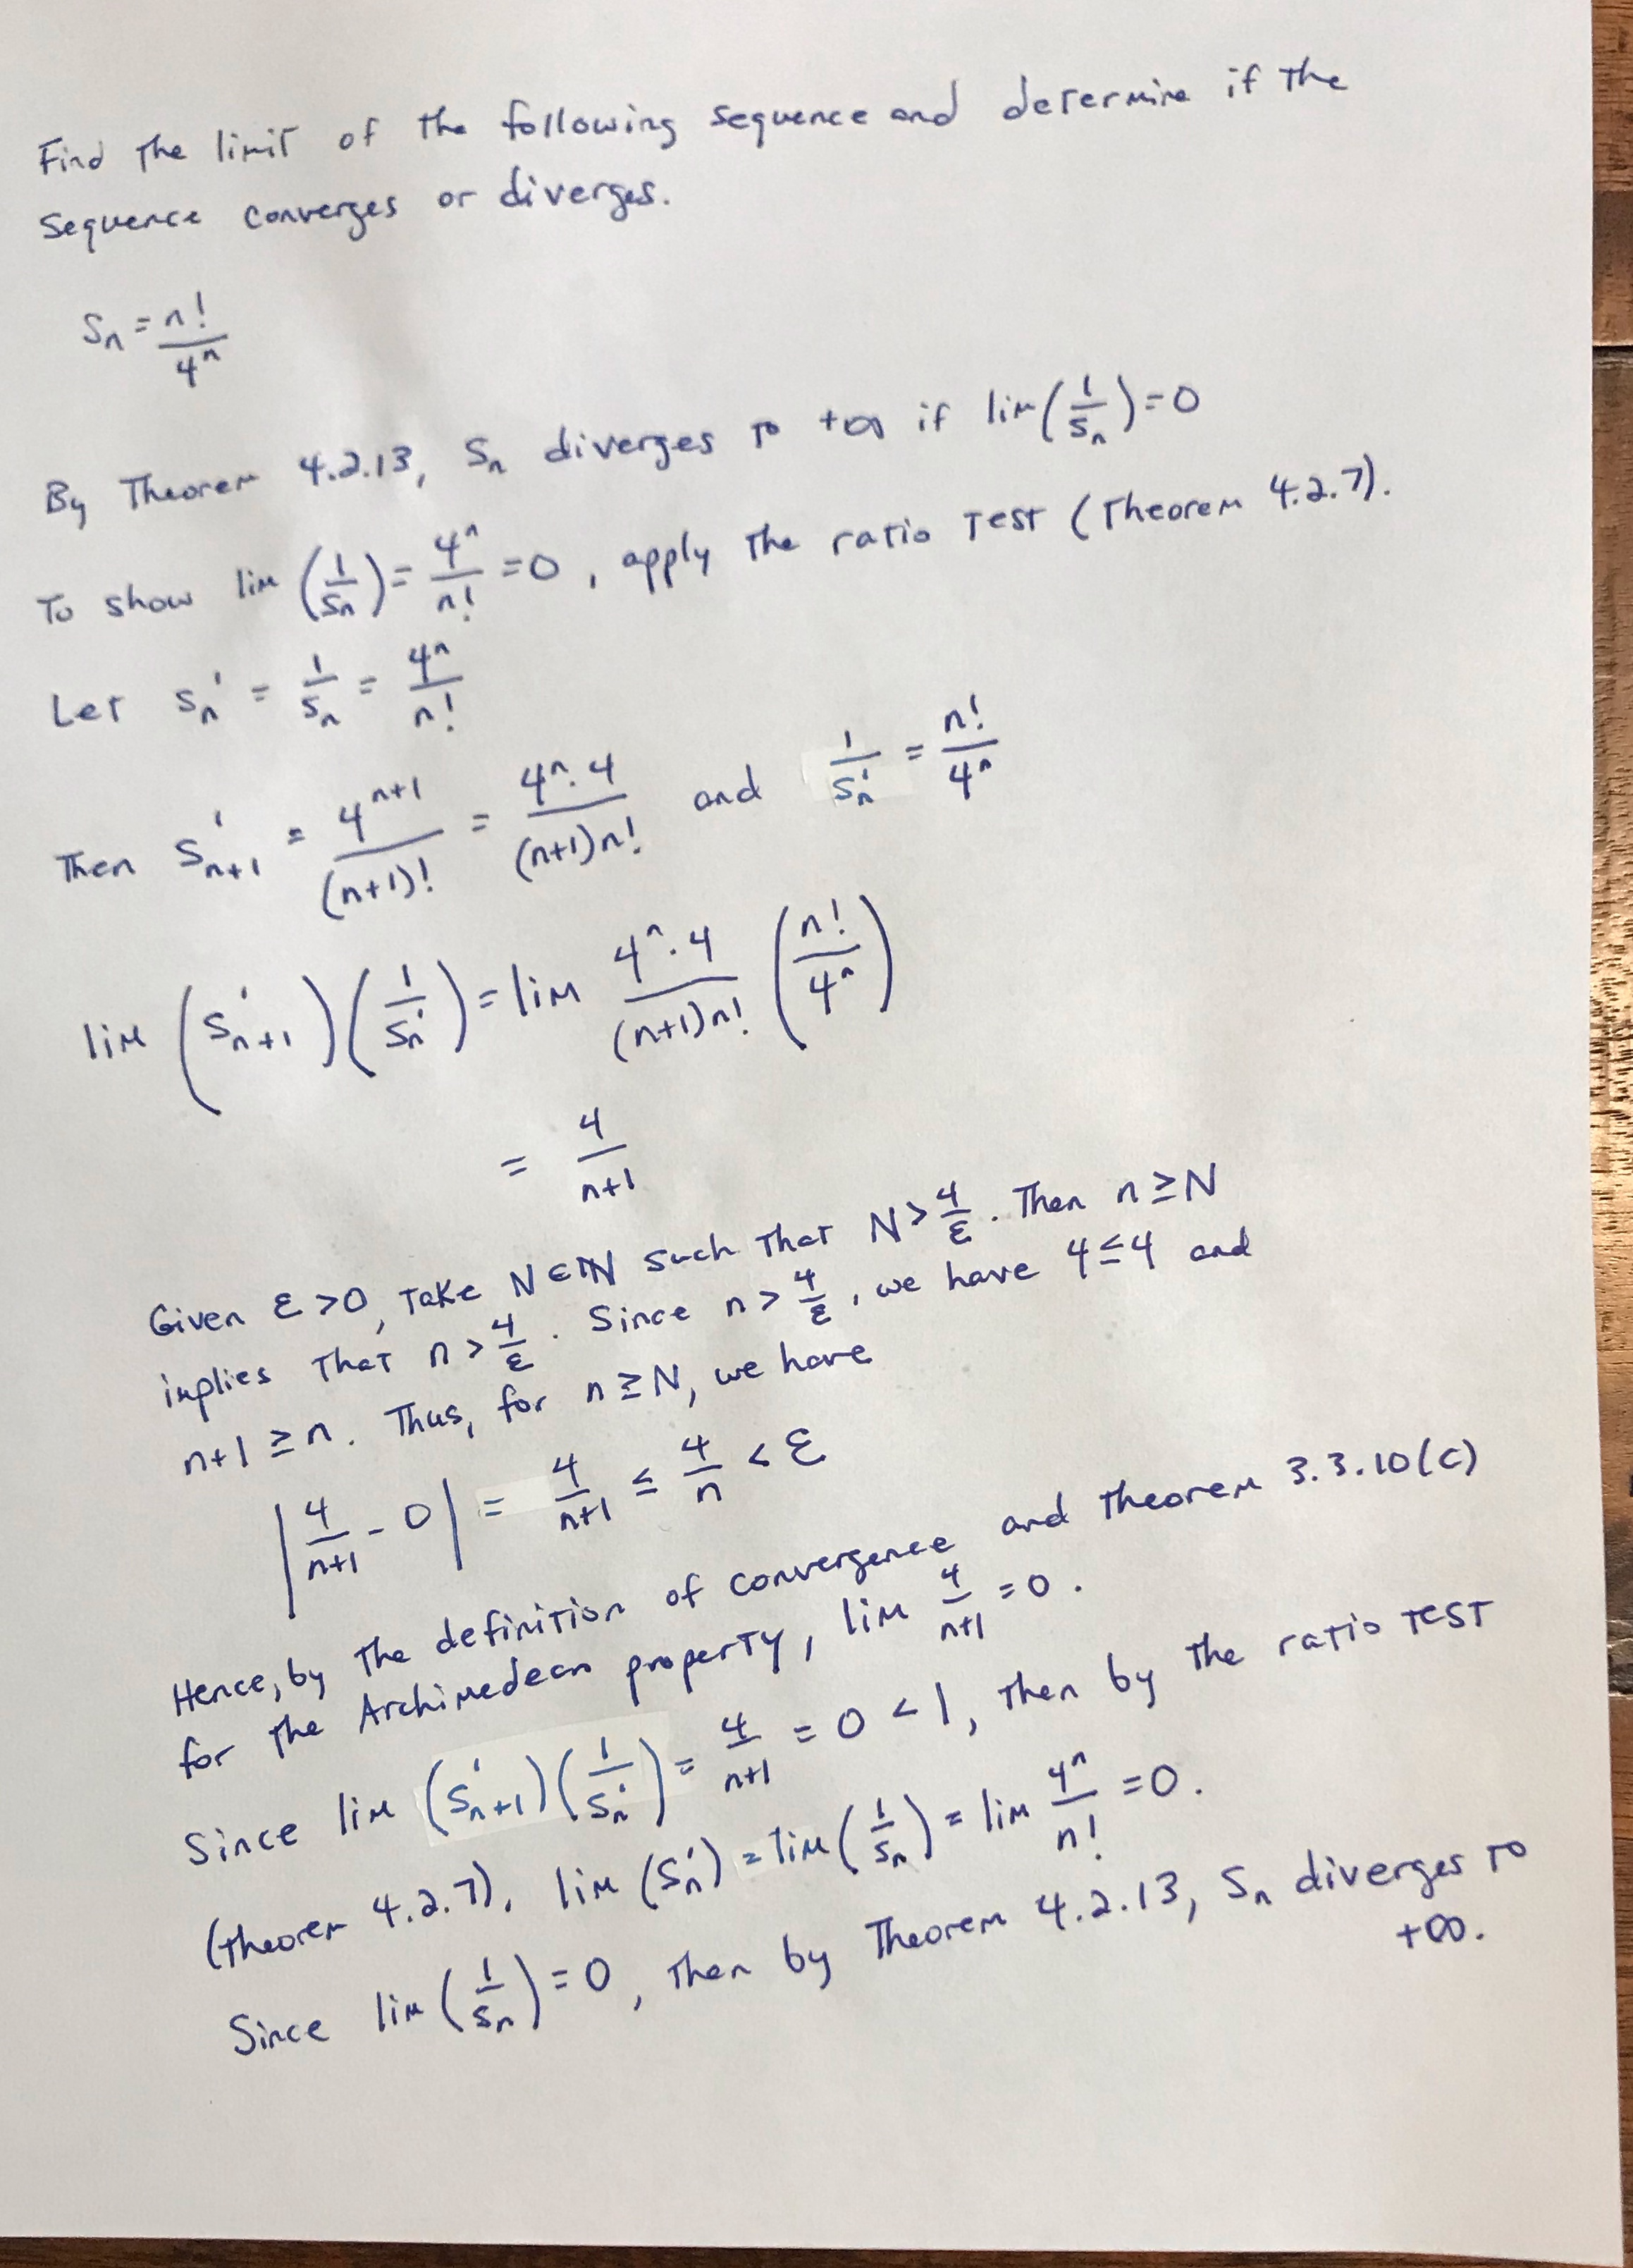 Find the limit of the following sequence and determine if the
sequence converges or diverges.
Sₙ = n!/4ⁿ
By Theorem 4.2.13, Sₙ diverges to +∞ if lim(1/Sₙ)=0
To show lim (1/Sₙ) = 4ⁿ/n! = 0, apply the ratio test (Theorem 4.2.7).
Let Sₙ' = 1/Sₙ = 4ⁿ/n!
Then Sₙ₊₁' = 4ⁿ⁺¹/(n+1)! = 4ⁿ·4/(n+1)n! and 1/Sₙ' = n!/4ⁿ
lim (Sₙ₊₁')(1/Sₙ') = lim 4ⁿ·4/(n+1)n! (n!/4ⁿ)
= 4/n+1
Given ε>0, take N∈ℕ such that N>4/ε. Then n≥N
implies that n>4/ε. Since n>4/ε, we have 4≤4 and
n+1≥n. Thus, for n≥N, we have
|4/n+1 - 0| = 4/n+1 ≤ 4/n < ε
Hence, by the definition of convergence and theorem 3.3.10(c)
for the Archimedean property, lim 4/n+1 = 0.
Since lim (Sₙ₊₁')(1/Sₙ') = 4/n+1 = 0 < 1, then by the ratio test
(theorem 4.2.7), lim (Sₙ') = lim(1/Sₙ) = lim 4ⁿ/n! = 0.
Since lim (1/Sₙ) = 0, then by Theorem 4.2.13, Sₙ diverges to
+∞.